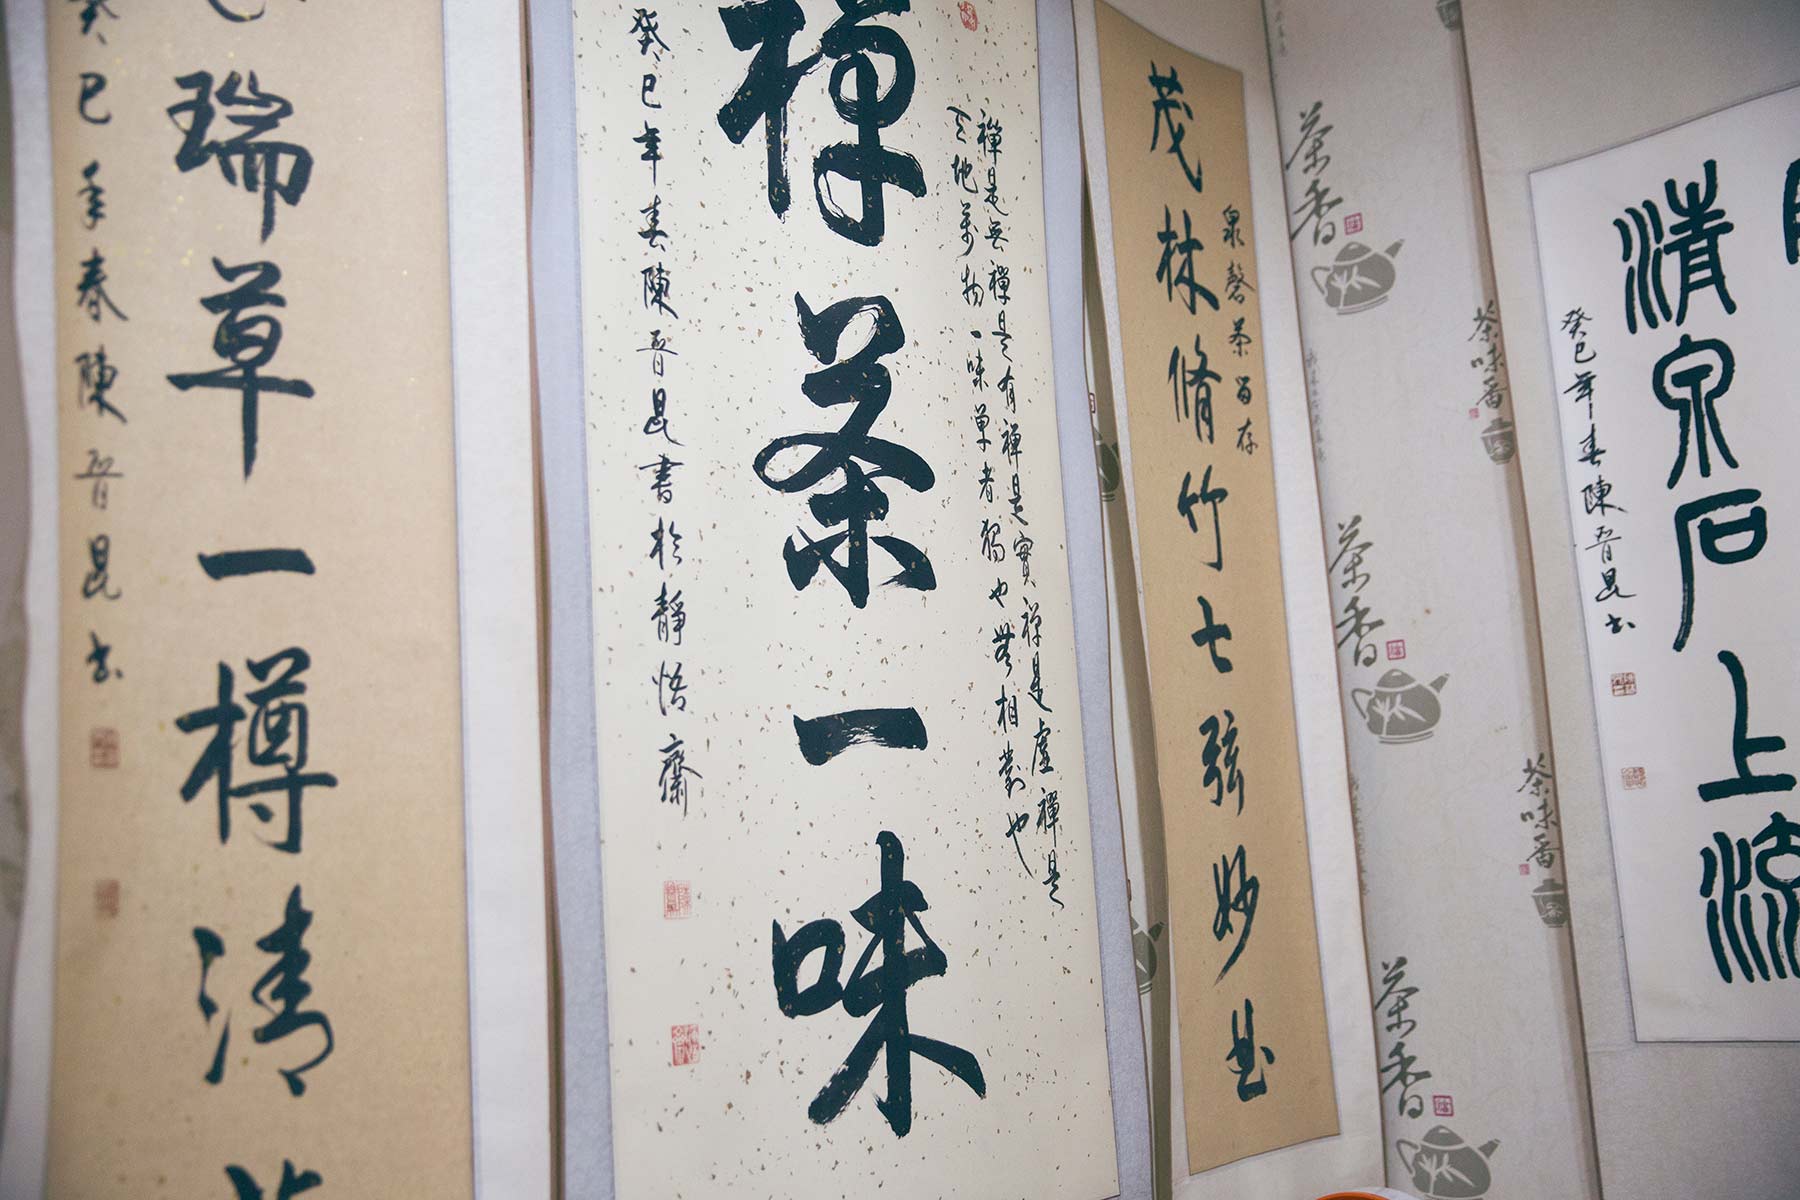 瑞草一樽清
癸巳年春陳晉昆书
禪茶一味
禪是無禪是有禪是實禪是虛禪是
天地萬物一味單者獨也無相對也
癸巳年春陳晉昆書於靜悟齋
茂林脩竹七弦妙曲
泉馨茶留存
茶香
茶味香
茶香
茶味香
茶香
清泉石上流
癸巳年春陳晉昆书